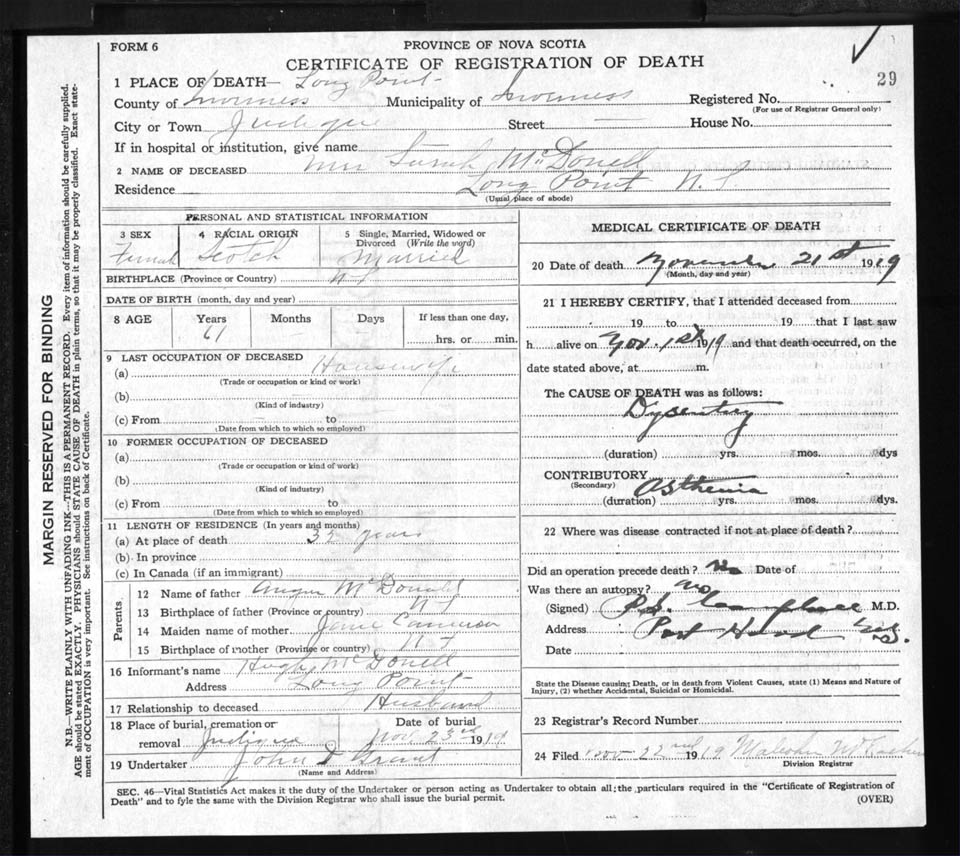 FORM 6
PROVINCE OF NOVA SCOTIA
CERTIFICATE OF REGISTRATION OF DEATH
29
1 PLACE OF DEATH— Long Point
County of Inverness Municipality of Inverness Registered No.
(For use of Registrar General only)
City or Town Judique Street — House No.
If in hospital or institution, give name
2 NAME OF DECEASED Mrs Sarah McDonell
Residence Long Point N. S.
(Usual place of abode)
MARGIN RESERVED FOR BINDING
N.B.—WRITE PLAINLY WITH UNFADING INK—THIS IS A PERMANENT RECORD. Every item of information should be carefully supplied.
AGE should be stated EXACTLY. PHYSICIANS should STATE CAUSE OF DEATH in plain terms, so that it may be properly classified. Exact state-
ment of OCCUPATION is very important. See instructions on back of Certificate.
PERSONAL AND STATISTICAL INFORMATION
3 SEX 4 RACIAL ORIGIN 5 Single, Married, Widowed or
Divorced (Write the word)
Female Scotch Married
BIRTHPLACE (Province or Country)
DATE OF BIRTH (month, day and year)
8 AGE Years Months Days If less than one day,
61 — hrs. or min.
9 LAST OCCUPATION OF DECEASED
(a) Housewife
(Trade or occupation or kind or work)
(b)
(Kind of industry)
(c) From to
(Date from which to which so employed)
10 FORMER OCCUPATION OF DECEASED
(a)
(Trade or occupation or kind of work)
(b)
(Kind of industry)
(c) From to
(Date from which to which so employed)
11 LENGTH OF RESIDENCE (In years and months)
(a) At place of death years
(b) In province
(c) In Canada (if an immigrant)
Parents
12 Name of father Angus McDonald
13 Birthplace of father (Province or country)
14 Maiden name of mother Jane Cameron
15 Birthplace of mother (Province or country)
16 Informant's name Hugh McDonell
Address Long Point
17 Relationship to deceased Husband
18 Place of burial, cremation or Date of burial
removal Judique Nov 23rd 1919
19 Undertaker John Grant
(Name and Address)
MEDICAL CERTIFICATE OF DEATH
20 Date of death November 21st 1919
(Month, day and year)
21 I HEREBY CERTIFY, that I attended deceased from
19 to 19 that I last saw
h alive on Nov. 1st 1919 and that death occurred, on the
date stated above, at m.
The CAUSE OF DEATH was as follows:
Dysentry
(duration) yrs. mos. dys
CONTRIBUTORY Asthenia
(Secondary)
(duration) yrs. mos. dys.
22 Where was disease contracted if not at place of death?
Did an operation precede death? No Date of
Was there an autopsy? no
(Signed) P.S. Campbell M.D.
Address Port Hood
Date
State the Disease causing Death, or in death from Violent Causes, state (1) Means and Nature of
Injury, (2) whether Accidental, Suicidal or Homicidal.
23 Registrar's Record Number
24 Filed Nov 22nd 1919 Malcolm
Division Registrar
SEC. 46—Vital Statistics Act makes it the duty of the Undertaker or person acting as Undertaker to obtain all the particulars required in the "Certificate of Registration of
Death" and to fyle the same with the Division Registrar who shall issue the burial permit.
(OVER)